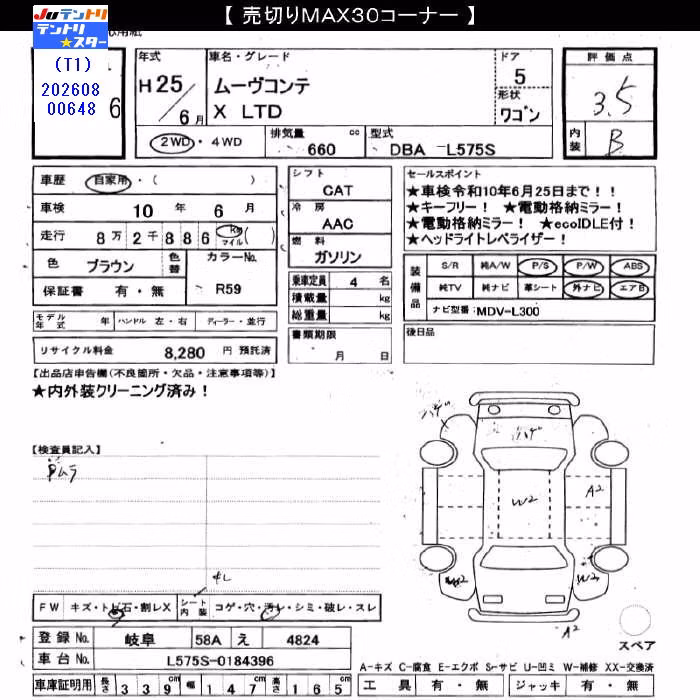 【 売切りMAX30コーナー 】
JUテントリ
テントリ★スター
(T1)
202608
00648
6
年式
H25/6月
車名・グレード
ムーヴコンテ
X LTD
ドア
5
形状
ワゴン
評価点
3.5
内装
B
2WD・4WD
排気量
660 cc
型式
DBA －L575S
車歴 自家用・( )
車検 10 年 6 月
走行 8万2千886 km マイル( )
色 ブラウン 色替
カラーNo.
R59
保証書 有・無
モデル年式 年 ハンドル 左・右 ディーラー・並行
リサイクル料金 8,280 円 預託済
シフト
CAT
冷房
AAC
燃料
ガソリン
乗車定員 4 名
積載量 kg
総重量 kg
書類期限
月 日
セールスポイント
★車検令和10年6月25日まで！！
★キーフリー！ ★電動格納ミラー！
★電動格納ミラー！ ★ecoIDLE付！
★ヘッドライトレベライザー！
装備品
S/R 純A/W P/S P/W ABS
純TV 純ナビ 革シート 外ナビ エアB
ナビ型番：MDV-L300
後日品
【出品店申告欄(不良箇所・欠品・注意事項等)】
★内外装クリーニング済み！
【検査員記入】
ムラ
ハゲ
ハゲ
W2
A2
W2
W2
A2
FW キズ・トビ石・割レX
シート内装 コゲ・穴・汚レ・シミ・破レ・スレ
登録No. 岐阜 58A え 4824
車台No. L575S-0184396
車庫証明用 長さ 339 幅 147 高さ 165
スペア
A-キズ C-腐食 E-エクボ S-サビ U-凹ミ W-補修 XX-交換済
工具 有・無 ジャッキ 有・無